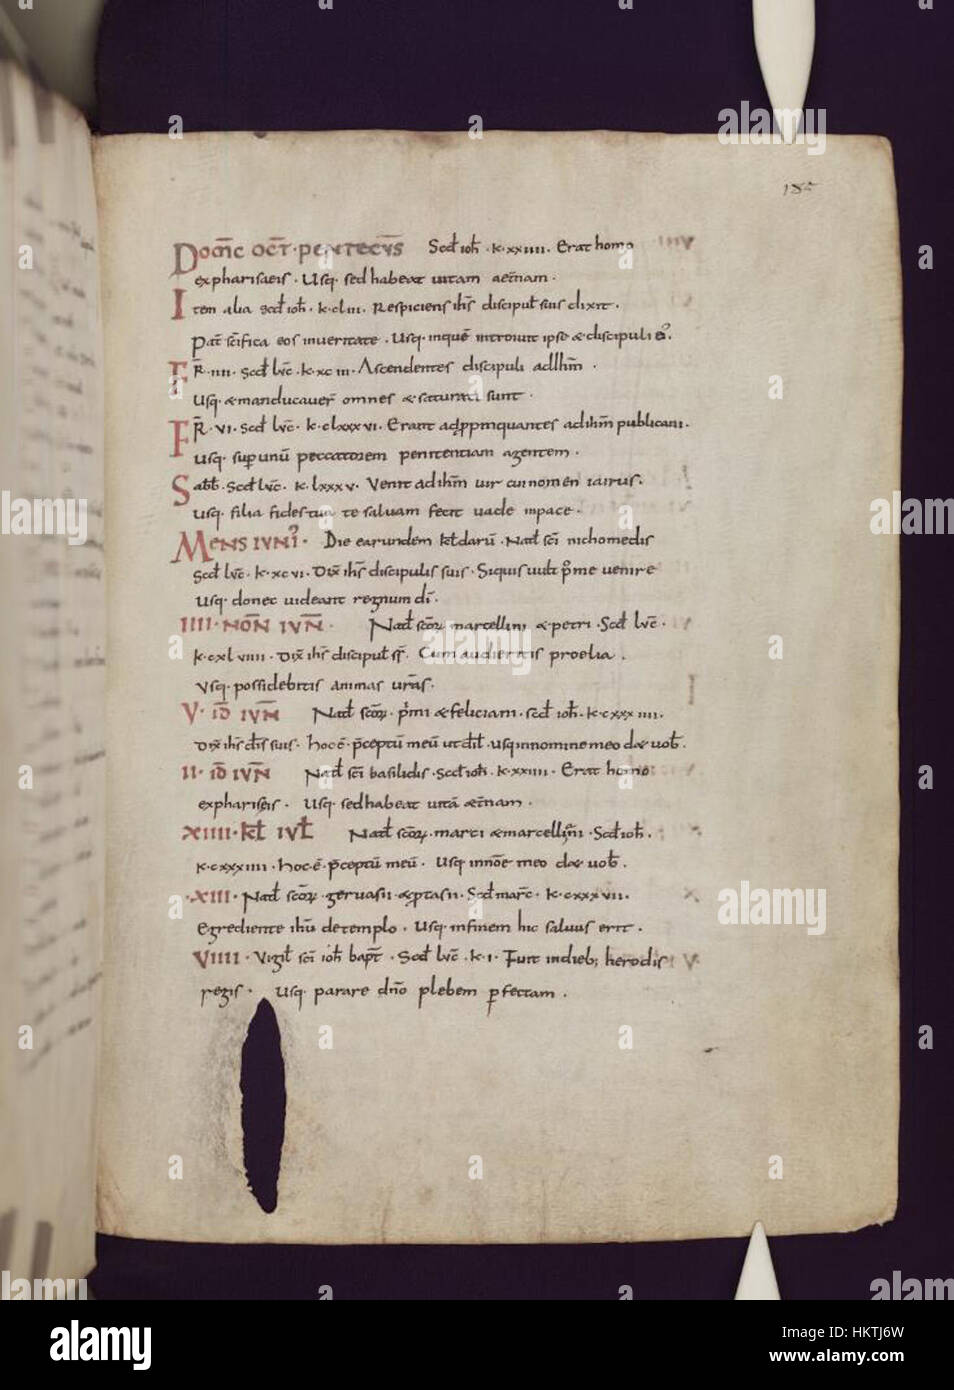 185
Domc̄ oct̄ · pentecs̄ Scđ ioħ · k · xxiiii · Erat homo
expharisaeis · Usq· sed habeat uitam aet̄nam ·
Item alia scđ ioħ · k · clii · Respiciens ih̄s discipuł suis dixit ·
Pat̄ sc̄ifica eos inueritate · Usq· inquē introiuit ipse & discipuli ei᾿.
FR̄ · iiii · Scđ luc̄ · k · xciii · Ascendentes discipuli adIhm̄ ·
Usq· & manducauer̄ omnes & saturati sunt ·
FR̄ · vi · Scđ luc̄ · k · clxxxvi · Erant adpp̄inquantes adihm̄ publicani ·
usq· sup unū peccatorem penitentiam agentem ·
Sabb̄ · Scđ luc̄ · k · lxxxv · Venit adihm̄ uir cui nomen iairus ·
usq· filia fides tua te saluam fecit uade inpace ·
Mens iuni᾿ · Die earundem kłdarū · Nať sc̄i nichomedis
Scđ luc̄ · k · xcvi · Dix̄ ih̄s discipulis suis · Siquis uult p̄me uenire
usq· donec uideant regnum dī ·
IIII · NON̄ IVN̄ · Nať sc̄oꝝ marcellini & petri · Scđ luc̄ ·
k · cxlviiii · Dix̄ ih̄s discipuł s · Cum audieritis proelia ·
Usq· possidebitis animas ur̄as ·
V · ID̄ IVN̄ Nať sc̄oꝝ · p̄mi & feliciani · scđ ioħ · k · cxxxiiii ·
Dix̄ ih̄s dis̄ suis · hoc ē p̄ceptū meū ut diľ · usq innomine meo d& uoƀ ·
II · ID̄ IVN̄ Nať sc̄i basilidis · Scđ ioħ · k · xxiiii · Erat homo
expharis̄eis · Usq· sed habeat uitā aet̄nam ·
XIIII · KŁ IVŁ Nať sc̄oꝝ · marci & marcelliani · Scđ ioħ ·
k · cxxxiiii · hoc ē p̄ceptū meū · usq innōe meo d& uoƀ ·
· XIII · Nať sc̄oꝝ · geruasii & ꝓtasii · Scđ marc̄ · k · cxxxvii ·
Egrediente ihū detemplo · Usq· infinem hic saluus erit ·
VIIII · Vigił sc̄i ioħ bapt̄ · Scđ luc̄ · k · i · Fuit indieb; herodis
regis · Usq· parare dn̄o plebem ꝑfectam ·
alamy stock photo
HKTJ6W
www.alamy.com